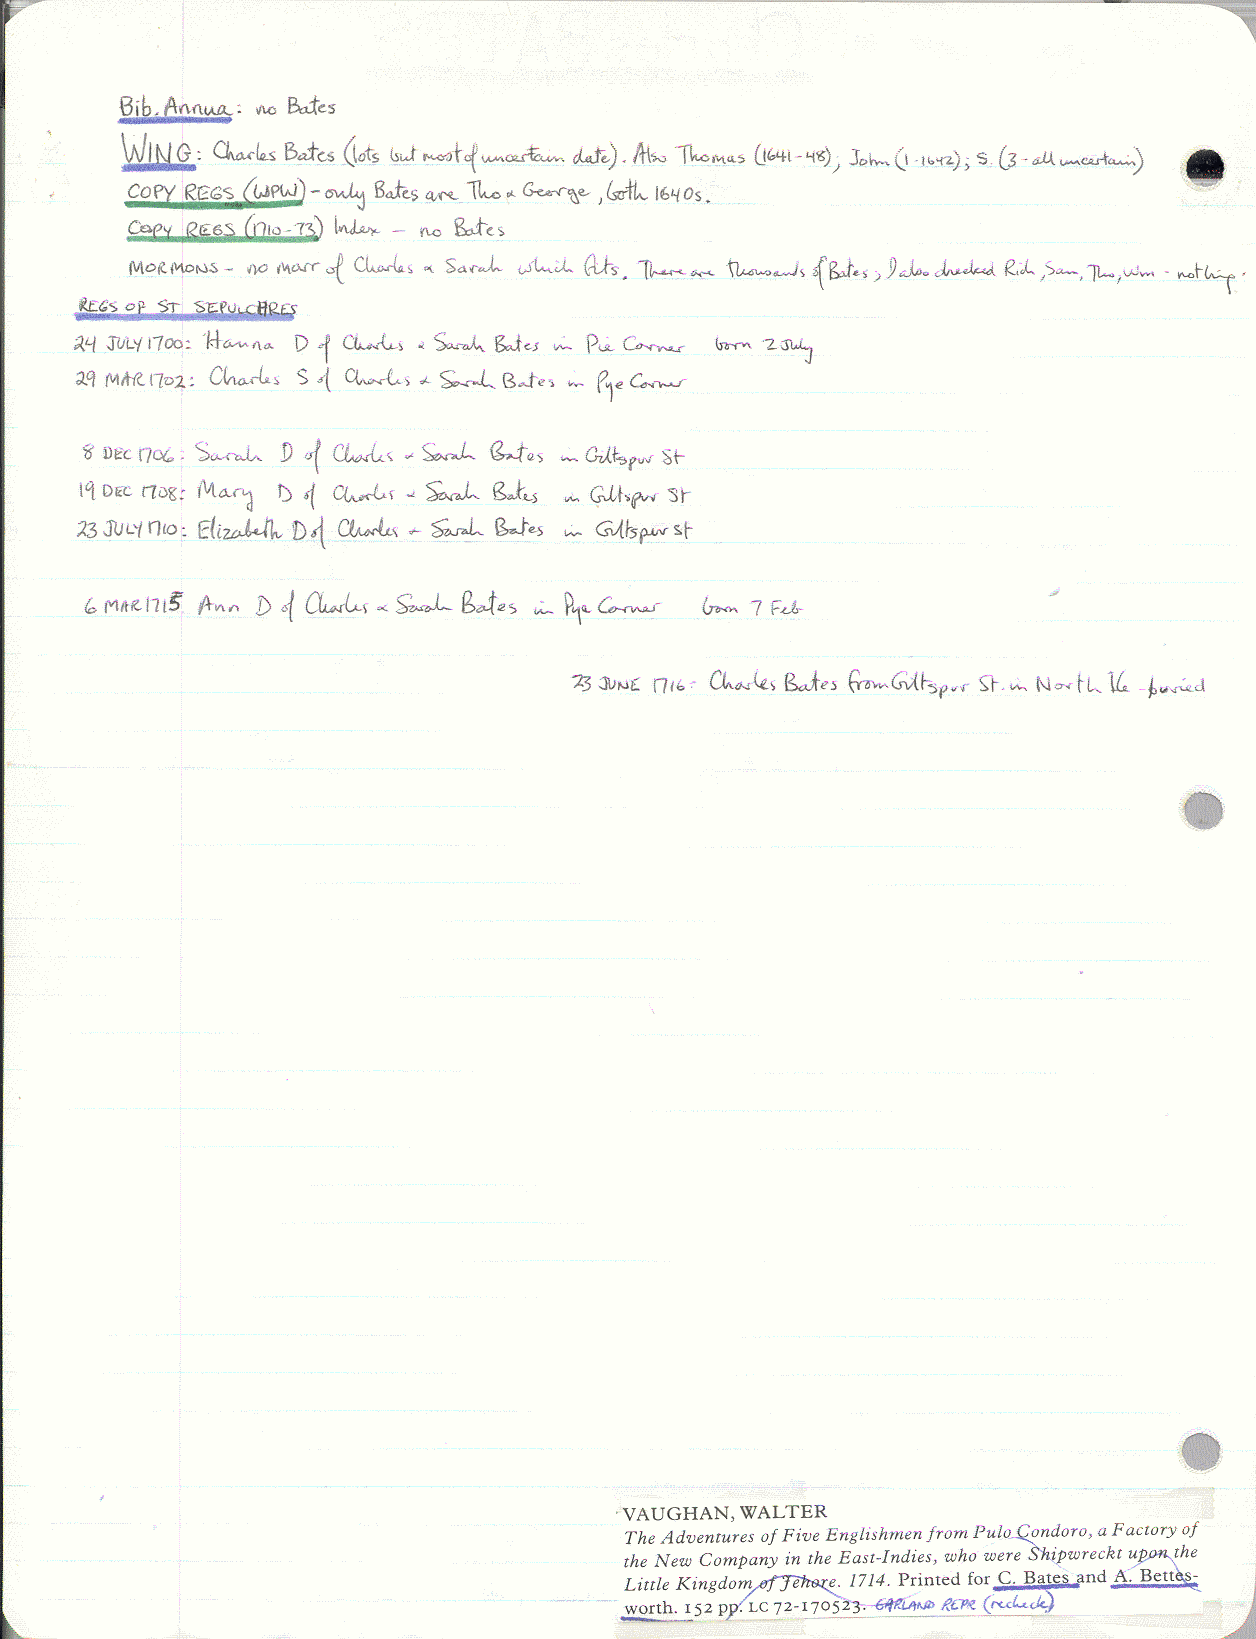 Bib. Annua: no Bates
WING: Charles Bates (lots but most of uncertain date). Also Thomas (1641-48); John (1-1642); S. (3-all uncertain)
COPY REGS (WPW) - only Bates are Tho & George, both 1640s.
COPY REGS (1710-73) Index - no Bates
MORMONS - no marr of Charles & Sarah which fits. There are thousands of Bates; I also checked Rich, Sam, Tho, Wm - nothing.
REGS OF ST SEPULCHRES
24 JULY 1700: Hanna D of Charles & Sarah Bates in Pie Corner born 2 July
29 MAR 1702: Charles S of Charles & Sarah Bates in Pye Corner
8 DEC 1706: Sarah D of Charles & Sarah Bates in Giltspur St
19 DEC 1708: Mary D of Charles & Sarah Bates in Giltspur St
23 JULY 1710: Elizabeth D of Charles & Sarah Bates in Giltspur St
6 MAR 1715 Ann D of Charles & Sarah Bates in Pye Corner born 7 Feb
23 JUNE 1716: Charles Bates from Giltspur St. in North - buried
VAUGHAN, WALTER
The Adventures of Five Englishmen from Pulo Condoro, a Factory of
the New Company in the East-Indies, who were Shipwreckt upon the
Little Kingdom of Jehore. 1714. Printed for C. Bates and A. Bettes-
worth. 152 pp. LC 72-170523. GARLAND REPR (recheck)